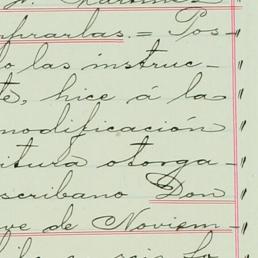 mprarlas. = Pos-
o las instruc-
te, hice á la
modificación
itura otorga-
scribano Don
ve de Noviem-